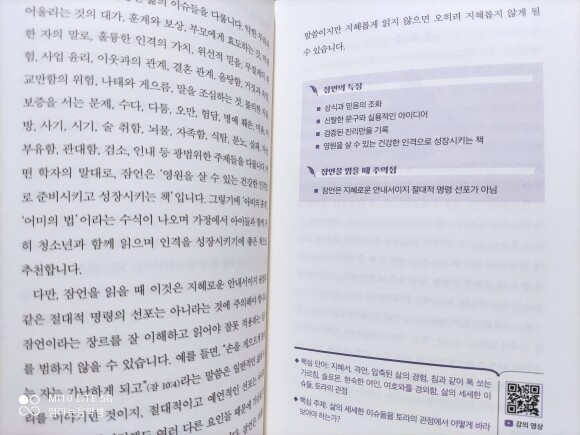 어울리는 것의 대가, 훈계와 보상, 부모에게 효도하는 것,
한 자의 말로, 훌륭한 인격의 가치, 위선적 믿음, 무절제의
험, 사업 윤리, 이웃과의 관계, 결혼 관계, 음탕함, 거짓과
교만함의 위험, 나태와 게으름, 말을 조심하는 것, 불의한
보증을 서는 문제, 수다, 다툼, 오만, 험담, 명예 훼손, 미움,
방, 사기, 시기, 술 취함, 뇌물, 자족함, 식탐, 분노, 실패,
부유함, 관대함, 검소, 인내 등 광범위한 주제들을 다룹니다.
떤 학자의 말대로, 잠언은 '영원을 살 수 있는 건강한 인격으
로 준비시키고 성장시키는 책'입니다. 그렇기에
'어미의 법'이라는 수식이 나오며 가정에서 아이들과 함께,
히 청소년과 함께 읽으며 인격을 성장시키기에 좋은 책으로
추천합니다.
다만, 잠언을 읽을 때 이것은 지혜로운 안내서이지 율법
같은 절대적 명령의 선포는 아니라는 것에 주의해야 합니다.
잠언이라는 장르를 잘 이해하고 읽어야 잘못 적용하는
를 범하지 않을 수 있습니다. 예를 들면, "손을 게으르게
는 자는 가난하게 되고"(잠 10:4)라는 말씀은 일반적인
리를 이야기한 것이지, 절대적이고 예언적인 선포는
여러 다른 요인들 때문에
말씀이지만 지혜롭게 읽지 않으면 오히려 지혜롭지 않게 될
수 있습니다.
잠언의 특징
■ 상식과 믿음의 조화
■ 신랄한 문구와 실용적인 아이디어
■ 검증된 진리만을 기록
■ 영원을 살 수 있는 건강한 인격으로 성장시키는 책
잠언을 읽을 때 주의점
■ 잠언은 지혜로운 안내서이지 절대적 명령 선포가 아님
◆ 핵심 단어: 지혜서, 격언, 압축된 삶의 경험, 침과 같이 톡 쏘는
가르침, 솔로몬, 현숙한 여인, 여호와를 경외함, 삶의 세세한 이
슈들, 토라의 관점
◆ 핵심 주제: 삶의 세세한 이슈들을 토라의 관점에서 어떻게 바라
보아야 하는가?
강의 영상
MI 10 LITE 5G